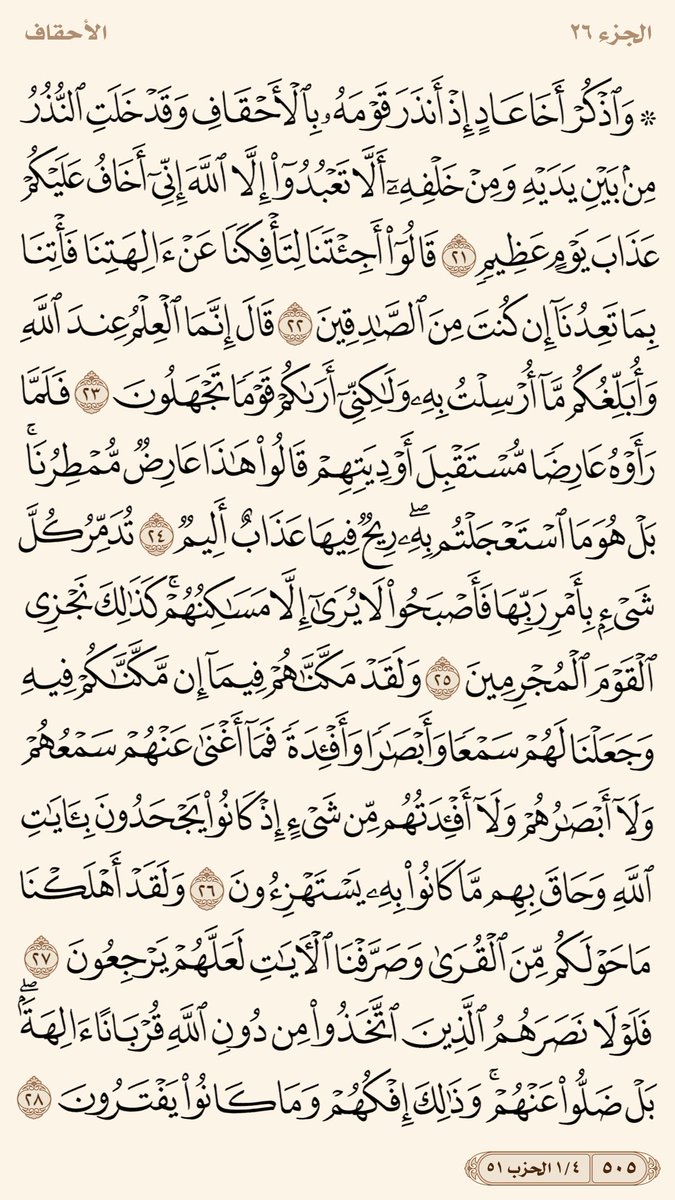 الجزء ٢٦ الأحقاف
۞ وَٱذۡكُرۡ أَخَا عَادٍ إِذۡ أَنذَرَ قَوۡمَهُۥ بِٱلۡأَحۡقَافِ وَقَدۡ خَلَتِ ٱلنُّذُرُ
مِنۢ بَيۡنِ يَدَيۡهِ وَمِنۡ خَلۡفِهِۦٓ أَلَّا تَعۡبُدُوٓاْ إِلَّا ٱللَّهَ إِنِّيٓ أَخَافُ عَلَيۡكُمۡ
عَذَابَ يَوۡمٍ عَظِيمٖ ٢١ قَالُوٓاْ أَجِئۡتَنَا لِتَأۡفِكَنَا عَنۡ ءَالِهَتِنَا فَأۡتِنَا
بِمَا تَعِدُنَآ إِن كُنتَ مِنَ ٱلصَّٰدِقِينَ ٢٢ قَالَ إِنَّمَا ٱلۡعِلۡمُ عِندَ ٱللَّهِ
وَأُبَلِّغُكُم مَّآ أُرۡسِلۡتُ بِهِۦ وَلَٰكِنِّيٓ أَرَىٰكُمۡ قَوۡمٗا تَجۡهَلُونَ ٢٣ فَلَمَّا
رَأَوۡهُ عَارِضٗا مُّسۡتَقۡبِلَ أَوۡدِيَتِهِمۡ قَالُواْ هَٰذَا عَارِضٞ مُّمۡطِرُنَاۚ
بَلۡ هُوَ مَا ٱسۡتَعۡجَلۡتُم بِهِۦۖ رِيحٞ فِيهَا عَذَابٌ أَلِيمٞ ٢٤ تُدَمِّرُ كُلَّ
شَيۡءِۭ بِأَمۡرِ رَبِّهَا فَأَصۡبَحُواْ لَا يُرَىٰٓ إِلَّا مَسَٰكِنُهُمۡۚ كَذَٰلِكَ نَجۡزِي
ٱلۡقَوۡمَ ٱلۡمُجۡرِمِينَ ٢٥ وَلَقَدۡ مَكَّنَّٰهُمۡ فِيمَآ إِن مَّكَّنَّٰكُمۡ فِيهِ
وَجَعَلۡنَا لَهُمۡ سَمۡعٗا وَأَبۡصَٰرٗا وَأَفۡـِٔدَةٗ فَمَآ أَغۡنَىٰ عَنۡهُمۡ سَمۡعُهُمۡ
وَلَآ أَبۡصَٰرُهُمۡ وَلَآ أَفۡـِٔدَتُهُم مِّن شَيۡءٍ إِذۡ كَانُواْ يَجۡحَدُونَ بِـَٔايَٰتِ
ٱللَّهِ وَحَاقَ بِهِم مَّا كَانُواْ بِهِۦ يَسۡتَهۡزِءُونَ ٢٦ وَلَقَدۡ أَهۡلَكۡنَا
مَا حَوۡلَكُم مِّنَ ٱلۡقُرَىٰ وَصَرَّفۡنَا ٱلۡأٓيَٰتِ لَعَلَّهُمۡ يَرۡجِعُونَ ٢٧
فَلَوۡلَا نَصَرَهُمُ ٱلَّذِينَ ٱتَّخَذُواْ مِن دُونِ ٱللَّهِ قُرۡبَانًا ءَالِهَةَۢۖ
بَلۡ ضَلُّواْ عَنۡهُمۡۚ وَذَٰلِكَ إِفۡكُهُمۡ وَمَا كَانُواْ يَفۡتَرُونَ ٢٨
٥٠٥ ١/٤ الحزب ٥١